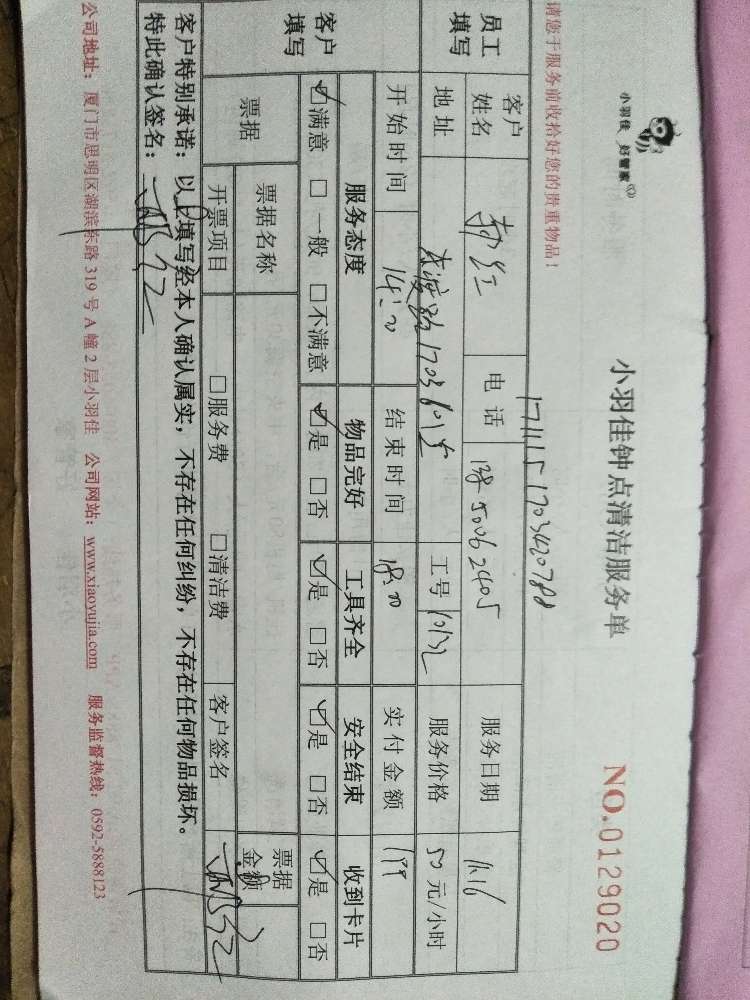 小羽佳 好管家
小羽佳钟点清洁服务单
NO.0129020
请您于服务前收拾好您的贵重物品！
1711151703420788
员工填写
客户姓名 电话 138 5006 2405 服务日期 11.16
地址 1703 601 工号 10132 服务价格 50 元/小时
开始时间 14:00 结束时间 18:00 实付金额 199
客户填写
服务态度 物品完好 工具齐全 安全结束 收到卡片
☑满意 □一般 □不满意 ☑是 □否 ☑是 □否 ☑是 □否 ☑是 □否
票据 票据名称 票据金额
开票项目 □服务费 □清洁费 客户签名
客户特别承诺：以上填写经本人确认属实，不存在任何纠纷，不存在任何物品损坏。
特此确认签名：
公司地址：厦门市思明区湖滨东路 319 号 A 幢 2 层小羽佳 公司网站：www.xiaoyujia.com 服务监督热线：0592-5888123